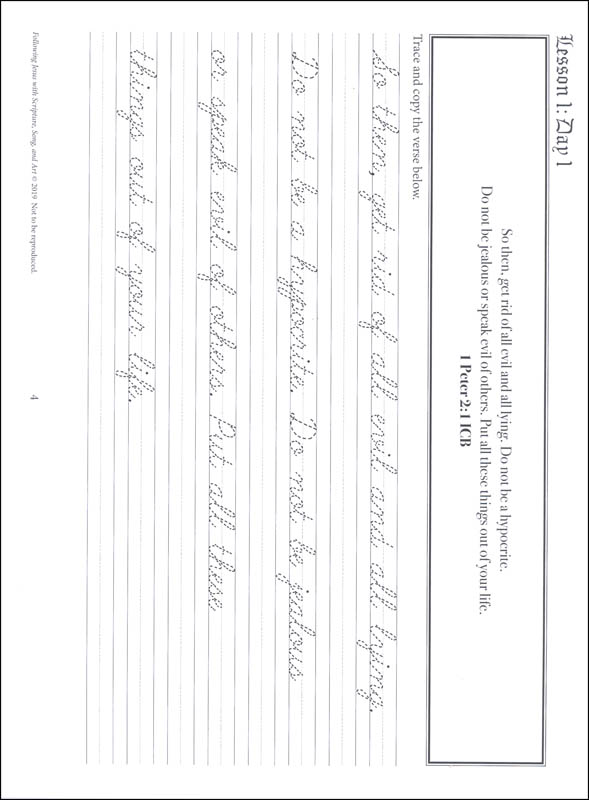 Lesson 1: Day 1
So then, get rid of all evil and all lying. Do not be a hypocrite.
Do not be jealous or speak evil of others. Put all these things out of your life.
1 Peter 2:1 ICB
Trace and copy the verse below.
So then, get rid of all evil and all lying.
Do not be a hypocrite. Do not be jealous
or speak evil of others. Put all these
things out of your life.
Following Jesus with Scripture, Song, and Art © 2019 Not to be reproduced.
4